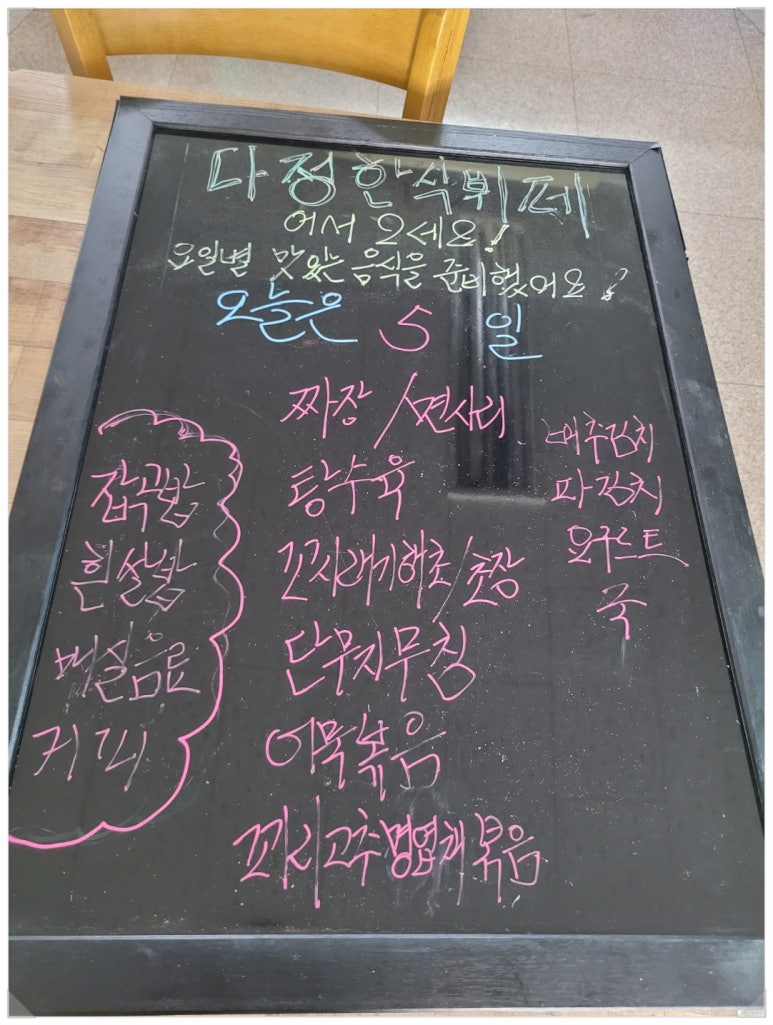 다정한식뷔페
어서 오세요!
요일별 맛있는 음식을 준비했어요!
오늘은 5일
잡곡밥
흰쌀밥
매실음료
커피
짜장/면사리
탕수육
꼬시래기해초/초장
단무지무침
어묵볶음
꽈리고추명엽채볶음
배추김치
파김치
요구르트
국